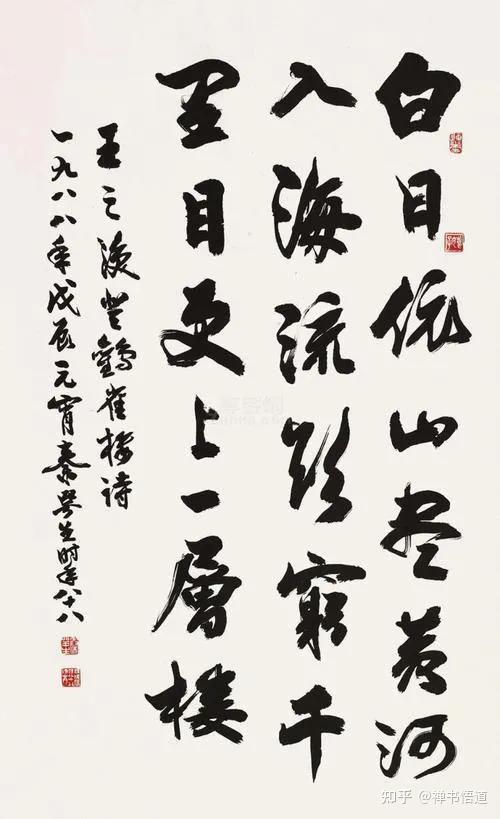 白日依山尽黄河
入海流欲窮千
里目更上一層楼
王之涣登鹳雀楼诗
一九八八年戊辰元宵秦咢生时年八十八
知乎 @禅书悟道